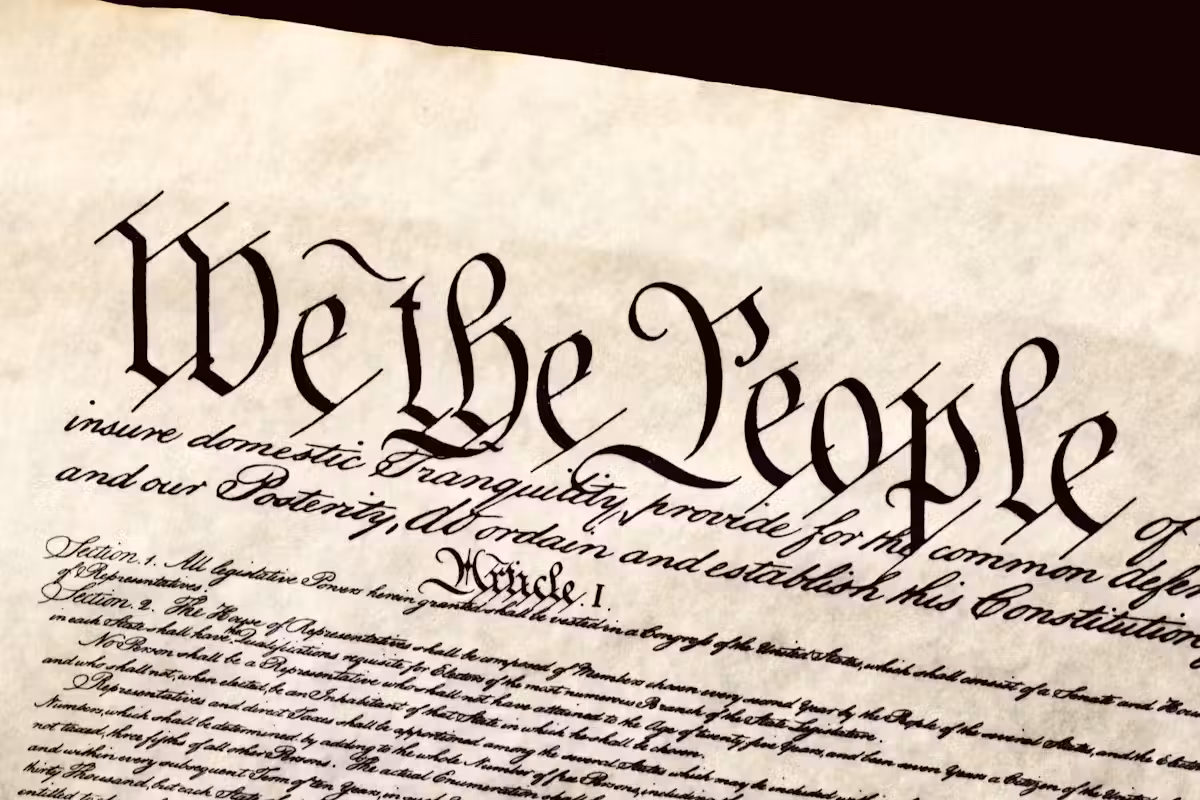 We the People of
insure domestic Tranquility, provide for the common defen
and our Posterity, do ordain and establish this Constitution
Article. I.
Section. 1. All legislative Powers herein granted shall be vested in a Congress of the United States, which shall consist of a Senate and Hou
of Representatives.
Section. 2. The House of Representatives shall be composed of Members chosen every second Year by the People of the several States, and the Elect
in each State shall have the Qualifications requisite for Electors of the most numerous Branch of the State Legislature.
No Person shall be a Representative who shall not have attained to the Age of twenty five Years, and been seven Years a Citizen of the United
and who shall not, when elected, be an Inhabitant of that State in which he shall be chosen.
Representatives and direct Taxes shall be apportioned among the several States which may be included
Numbers, which shall be determined by adding to the whole Number of free Persons, including
not taxed, three fifths of all other Persons. The actual Enumeration shall
and within every subsequent Term of ten Years, in
thirty Thousand, but each State
entitled to